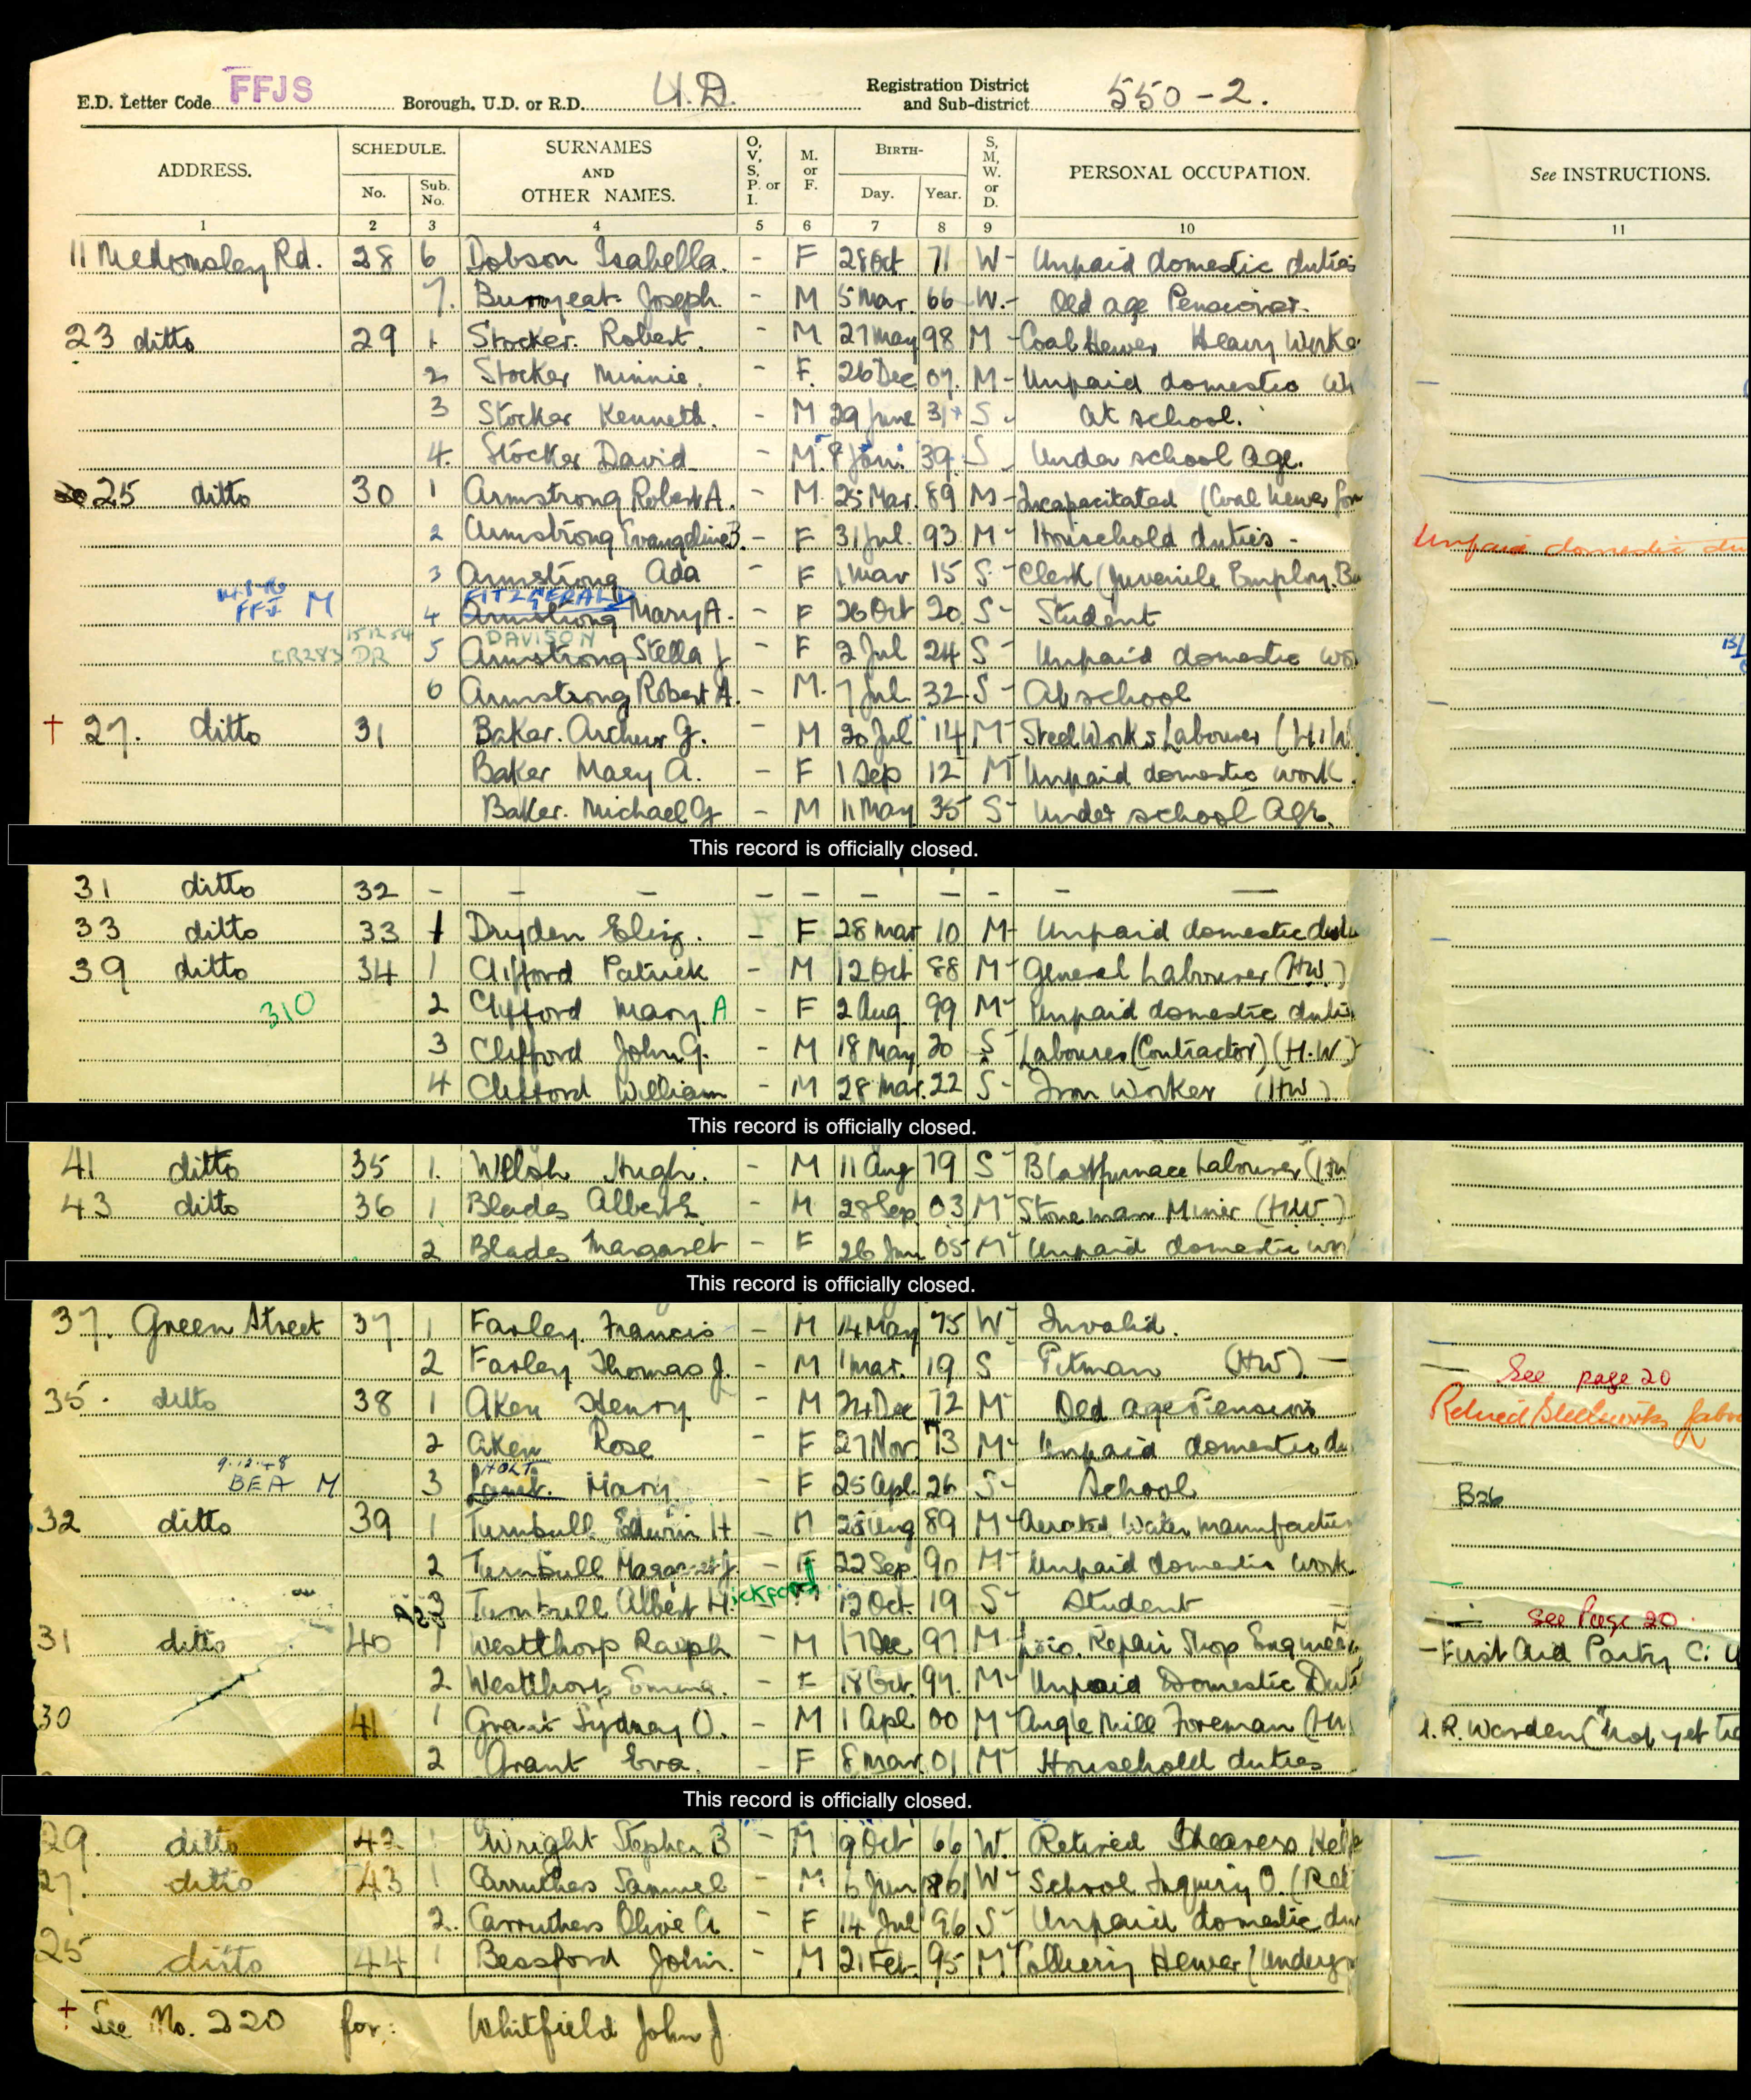 E.D. Letter Code FFJS Borough, U.D. or R.D. U.D. Registration District and Sub-district 550-2.
ADDRESS. SCHEDULE. No. Sub. No. SURNAMES AND OTHER NAMES. O, V, S, P. or I. M. or F. BIRTH- Day. Year. S, M, W. or D. PERSONAL OCCUPATION. See INSTRUCTIONS.
1 2 3 4 5 6 7 8 9 10 11
11 Medomsley Rd. 28 6 Dobson Isabella. - F 28 Oct 71 W - Unpaid domestic duties
7. Burnyeat Joseph. - M 5 Mar. 66 W. - Old age Pensioner.
23 ditto 29 1 Stocker. Robert. - M 27 May 98 M - Coal Hewer Heavy Worke
2 Stocker Minnie. - F. 26 Dec 07. M - Unpaid domestic
3 Stocker Kenneth. - M 29 June 31 S - At school.
4. Stocker David - M. 8 Jan. 39 S - Under school age.
25 ditto 30 1 Armstrong Robert A. - M. 25 Mar. 89 M - Incapacitated (Coal hewer for
2 Armstrong Evangeline B. - F 31 Jul. 93 M - Household duties - Unpaid domestic du
3 Armstrong Ada - F 1 Mar 15 S - Clerk (Juvenile Employ. Bu
FFI M FITZGERALD
4 Armstrong Mary A. - F 26 Oct 20 S - Student
15.12.54 CR283 DR DAVISON
5 Armstrong Stella J - F 2 Jul 24 S - Unpaid domestic wor
6 Armstrong Robert A. - M. 7 Jul 32 S - At school
† 27. ditto 31 Baker. Archur G. - M 20 Jul 14 M - Steel Works Labourer (H.W
Baker Mary A. - F 1 Sep 12 M Unpaid domestic work.
Baker. Michael G - M 11 May 35 S - Under school Age.
This record is officially closed.
31 ditto 32 - - - - - - - - - -
33 ditto 33 1 Dryden Eliz. - F 28 Mar 10 M - Unpaid domestic dutie
39 ditto 34 1 Clifford Patrick - M 12 Oct 88 M - General Labourer (HW.)
310 2 Clifford Mary. A - F 2 Aug 99 M - Unpaid domestic dutie
3 Clifford John G. - M 18 May 20 S - Labourer (Contractor) (H.W.)
4 Clifford William - M 28 Mar. 22 S - Iron Worker (HW)
This record is officially closed.
41 ditto 35 1. Welsh Hugh. - M 11 Aug 79 S - Blastfurnace Labourer (HW
43 ditto 36 1 Blades Albert - M 28 Sep 03 M - Stoneman Miner (H.W.)
2 Blades Margaret - F 26 Jun 05 M - Unpaid domestic wor
This record is officially closed.
37. Green Street 37 1 Farley. Francis - M 14 May 75 W - Invalid.
2 Farley Thomas J. - M 1 Mar. 19 S Pitman (HW) - See page 20
35. ditto 38 1 Aken Henry M 24 Dec 72 M - Old age Pension Retired Steelworks Labou
2 Aken Rose F 27 Nov. 73 M - Unpaid domestic du
9.12.48 BEA M HOLT
3 Lamb. Mary F 25 Apl. 26 S - School B26
32 ditto 39 1 Turnbull Edwin H - M 25 Aug 89 M - Aerated Water manufactur
2 Turnbull Margaret J. - F 22 Sep. 90 M - Unpaid domestic work
3 Turnbull Albert Hickford 12 Oct. 19 S - Student - See Page 20
31 ditto 40 1 Westthorp Raeph - M 17 Dec 97 M - Loco. Repair Shop Engineer - First Aid Party C.
2 Westthorp Emma. - F 18 Oct. 97. M - Unpaid Domestic Duti
30 41 1 Grant Sydney O. - M 1 Apl 00 M - Angle Mill Foreman (HW A.R. Warden ("not yet tra
2 Grant Eva. - F 8 Mar. 01 M - Household duties
This record is officially closed.
29. ditto 42 1 Wright Stephen B - M 9 Oct 66 W. Retired Shearers Helpe
27. ditto 43 1 Carruthers Samuel - M 6 Jun 1861 W - School Inquiry O. (Ret
2. Carruthers Olive A - F 14 Jul 96 S - Unpaid domestic du
25 ditto 44 1 Bessford John. - M 21 Feb. 95 M - Colliery Hewer (Undergr
† See No. 220 for: Whitfield John J.